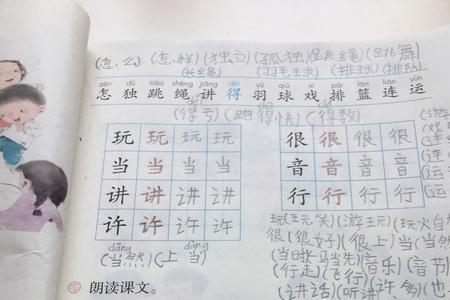 (怎、么)(怎、样)(独立)(孤独)(跳绳)(跳舞)
(长绳)(羽毛球)(排球)(排队)
zěn dú tiào shéng jiǎng děi yǔ qiú xì pái lán lián yùn
怎 独 跳 绳 讲 得 羽 球 戏 排 篮 连 运
(得亏)(跑得快)(得数)
玩 玩 玩 玩 很 很 很 很
当 当 当 当 音 音 音 音
讲 讲 讲 讲 行 行 行 行
许 许 许 许
dāng dàng
(当然)(上当)
玩(玩笑)(游玩)(玩火自
很(很好)(很上)当(当然
(当时)(当先)音(音乐)(音节)
(行走)(飞行)
(讲话)(听讲)许(许多)
朗读课文。